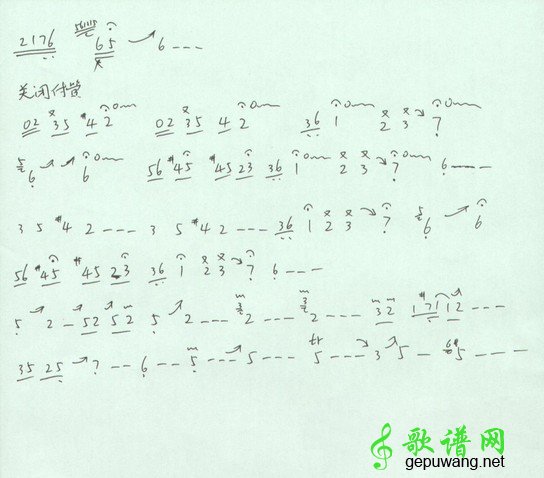 2176 56115 65 6 - - -
关闭付管
02 35 #4 2 02 35 4 2 36 1 2 3 7
5 6 6 56 #45 #45 23 36 1 2 3 7 6 - - - -
3 5 #4 2 - - - 3 5 #4 2 - - - 36 1 2 3 7 5 6 6
56 #45 #45 23 36 1 2 3 7 6 - - -
5 2 - 52 52 5 2 - - - 2 - - - 2 - - - 32 1 71 12 - - -
35 25 7 - - 6 - - 5 - - - 5 - - - tr 5 - - - 3 5 - 5 - - - -
歌谱网
gepuwang.net